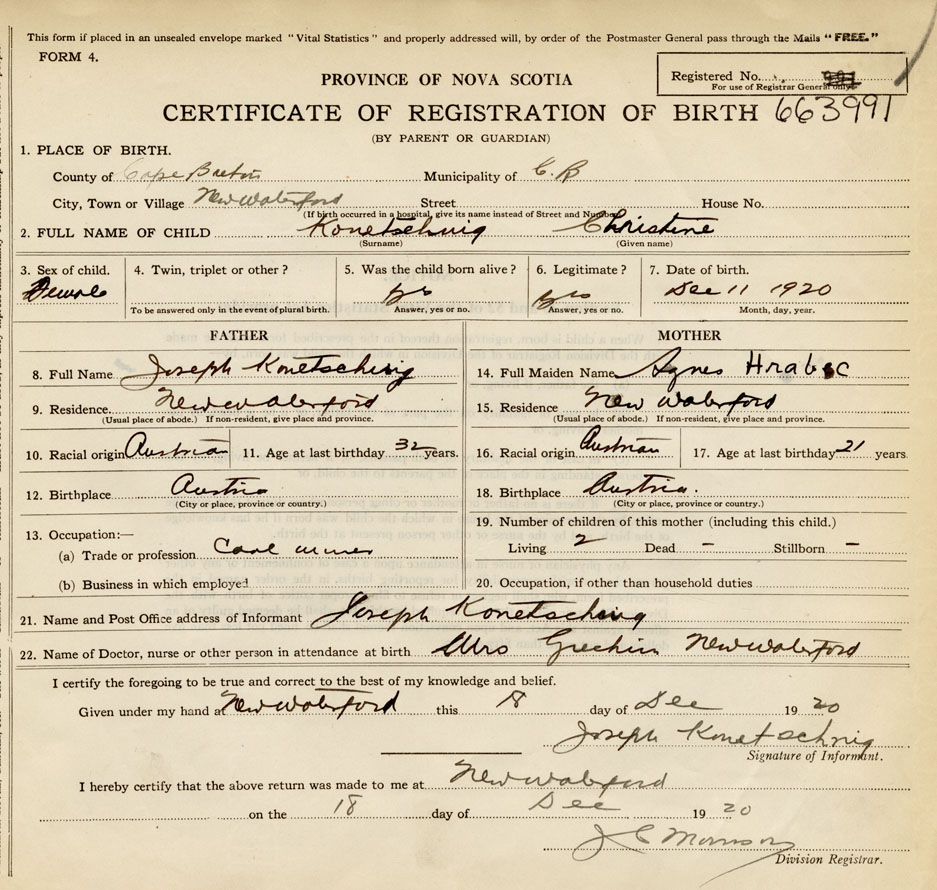 This form if placed in an unsealed envelope marked "Vital Statistics" and properly addressed will, by order of the Postmaster General pass through the Mails "FREE."
FORM 4.
Registered No. 991
For use of Registrar General only.
PROVINCE OF NOVA SCOTIA
CERTIFICATE OF REGISTRATION OF BIRTH 663991
(BY PARENT OR GUARDIAN)
1. PLACE OF BIRTH.
County of Cape Breton Municipality of C. B
City, Town or Village New Waterford Street House No.
(If birth occurred in a hospital, give its name instead of Street and Number)
2. FULL NAME OF CHILD Konetschnig Christine
(Surname) (Given name)
3. Sex of child. 4. Twin, triplet or other? 5. Was the child born alive? 6. Legitimate? 7. Date of birth.
Female yes yes Dec 11 1920
To be answered only in the event of plural birth. Answer, yes or no. Answer, yes or no. Month, day, year.
FATHER
8. Full Name Joseph Konetschnig
9. Residence. New Waterford
(Usual place of abode.) If non-resident, give place and province.
10. Racial origin Austrian 11. Age at last birthday 32 years.
12. Birthplace Austria
(City or place, province or country.)
13. Occupation:—
(a) Trade or profession Coal miner
(b) Business in which employed
MOTHER
14. Full Maiden Name Agnes Hrabec
15. Residence New Waterford
(Usual place of abode.) If non-resident, give place and province.
16. Racial origin Austrian 17. Age at last birthday 21 years
18. Birthplace Austria.
(City or place, province or country.)
19. Number of children of this mother (including this child.)
Living 2 Dead – Stillborn –
20. Occupation, if other than household duties
21. Name and Post Office address of Informant Joseph Konetschnig
22. Name of Doctor, nurse or other person in attendance at birth Mrs New Waterford
I certify the foregoing to be true and correct to the best of my knowledge and belief.
Given under my hand at New Waterford this 18 day of Dec 1920
Joseph Konetschnig
Signature of Informant.
I hereby certify that the above return was made to me at New Waterford
on the 18 day of Dec 1920
J C Morrison
Division Registrar.